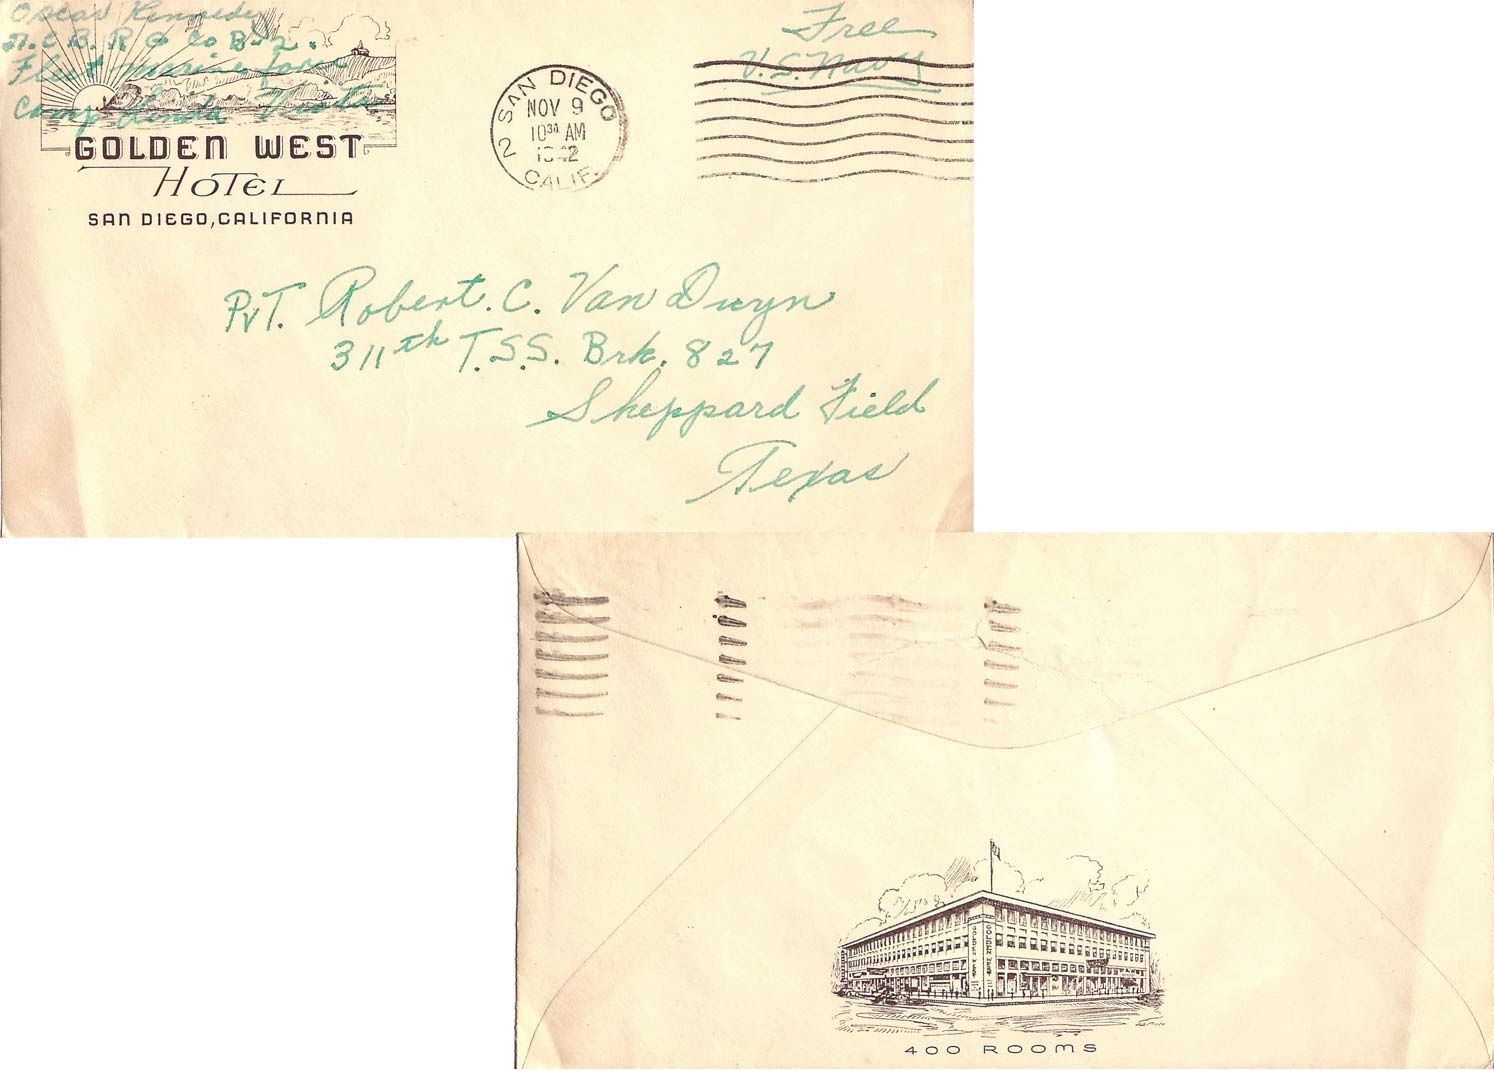 Oscar Kennedy
N.C.B. R G Co B-2.
Fleet Marine Force
Camp Linda Vista
GOLDEN WEST
HOTEL
SAN DIEGO, CALIFORNIA
SAN DIEGO
NOV 9
10 30 AM
1942
2 CALIF.
Free
U.S. Navy
PVT. Robert. C. Van Duyn
311th T.S.S. Brk. 827
Sheppard Field
Texas
GOLDEN WEST
GOLDEN WEST
400 ROOMS